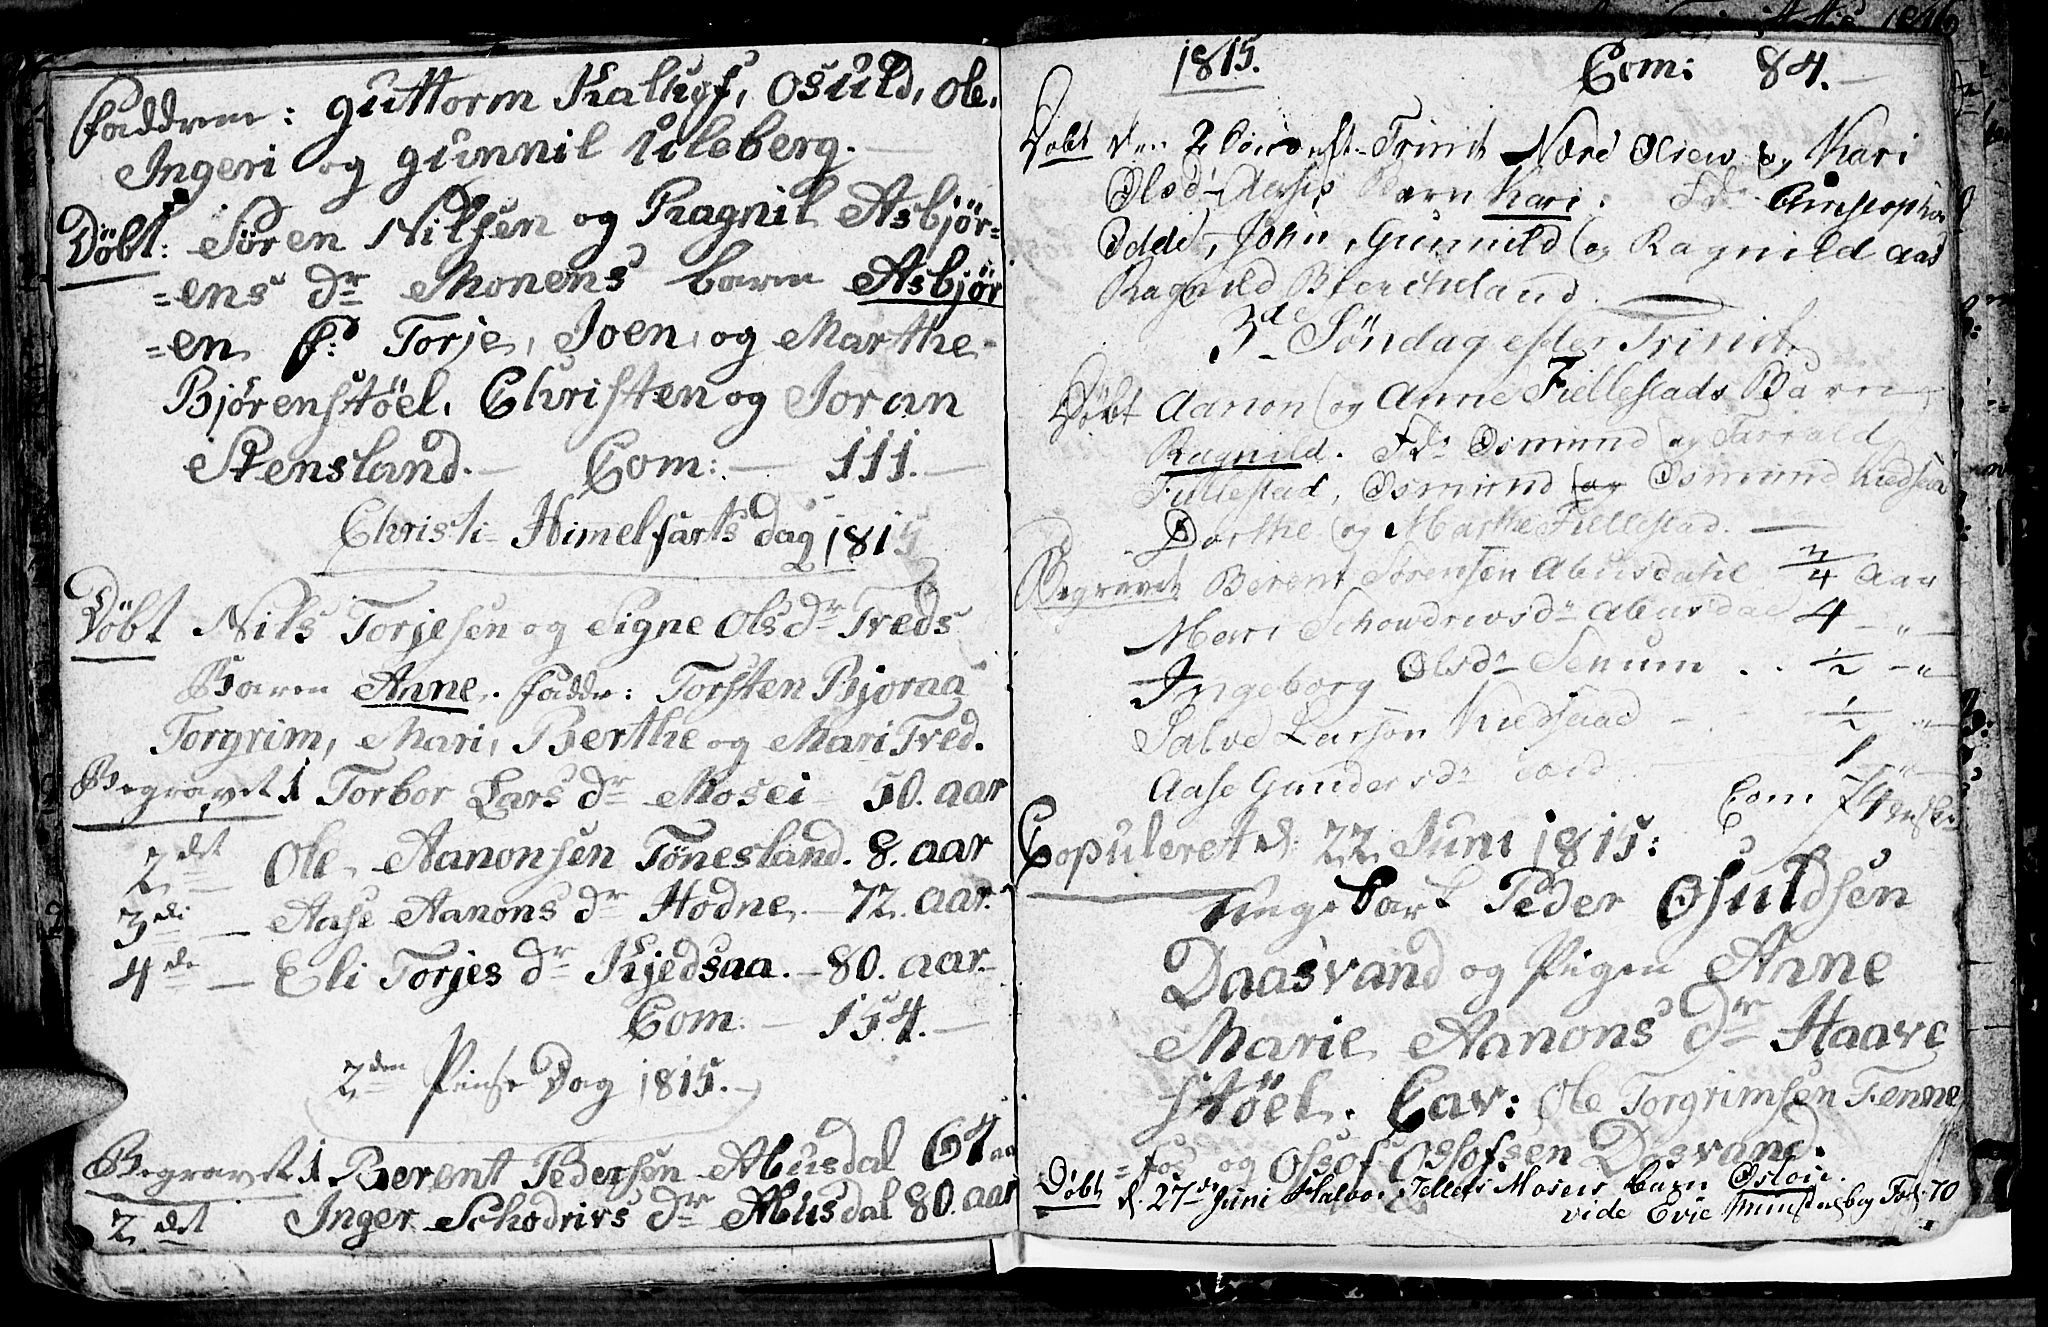 Faddrene: Guttorm Kaluof, Osuld, Ole,
Ingeri og Gunnil Uleberg.
Døbt: Sören Nilsen og Ragnil Asbjör=
=ens dr Monens barn Asbjör
=en F: Torje, Joen, og Marthe
Bjørenstöel. Christen og Joran
Stensland. Com: 111.
Christi Himelfarts dag 1815
Døbt Nils Torjesen og Signe Ols dr Treds
Barn Anne. Faddr: Torsten Bjoraa
Torgrim, Mari, Berthe og Mari Tred.
Begravet 1 Torbor Lars dr Mosei 50. aar
2det Ole Aanonsen Tønesland. 8. aar
3di Aase Aanons dr Hodne. 72. aar
4de Eli Torjes dr Kjedsaa. 80. aar.
Com: 154.
2den Pinse Dag 1815.
Begravet 1 Berent Pedersen Abusdal 64 aar
2det Inger Schodrivs dr Abusdal 80. aar
1815. Com: 84.
Døbt Trinit Nord Olsen og Kari
Olsd Barn Kari. Fdr
Odde, John, Gunnild og Ragnild Aas
Ragnild
3de Söndag efter Trinit
Døbt Aanon og Anne Fiellestads Barn
Ragnild. Fdr Osmund og Tarrald
Fiellestad, Osmund og Osmund Kiedsaa
Dorthe og Marthe Fiellestad.
Begravet Berent Sörensen Abusdahl 3/4 Aar
Mari Schowdrevsdr Abusdal 4 "
Ingeborg Olsdr Senum 1/2 "
Salve Larsön Kiedsaa 1/2 "
Aase Gundersdr 1 "
Com 74
Copuleret d: 22 Juni 1815:
Unge Karl Peder Osuldsen
Daasvand og Pigen Anne
Marie Aanons dr Haave
stöel. Cav: Ole Torgrimsen Fenne
=fos og Osof Ossofsen Dosvand.
Døbt d. 27de Juni Halvor Tellefs Moseis barn Osloie.
vide Evie Ministerialbog Fol: 70